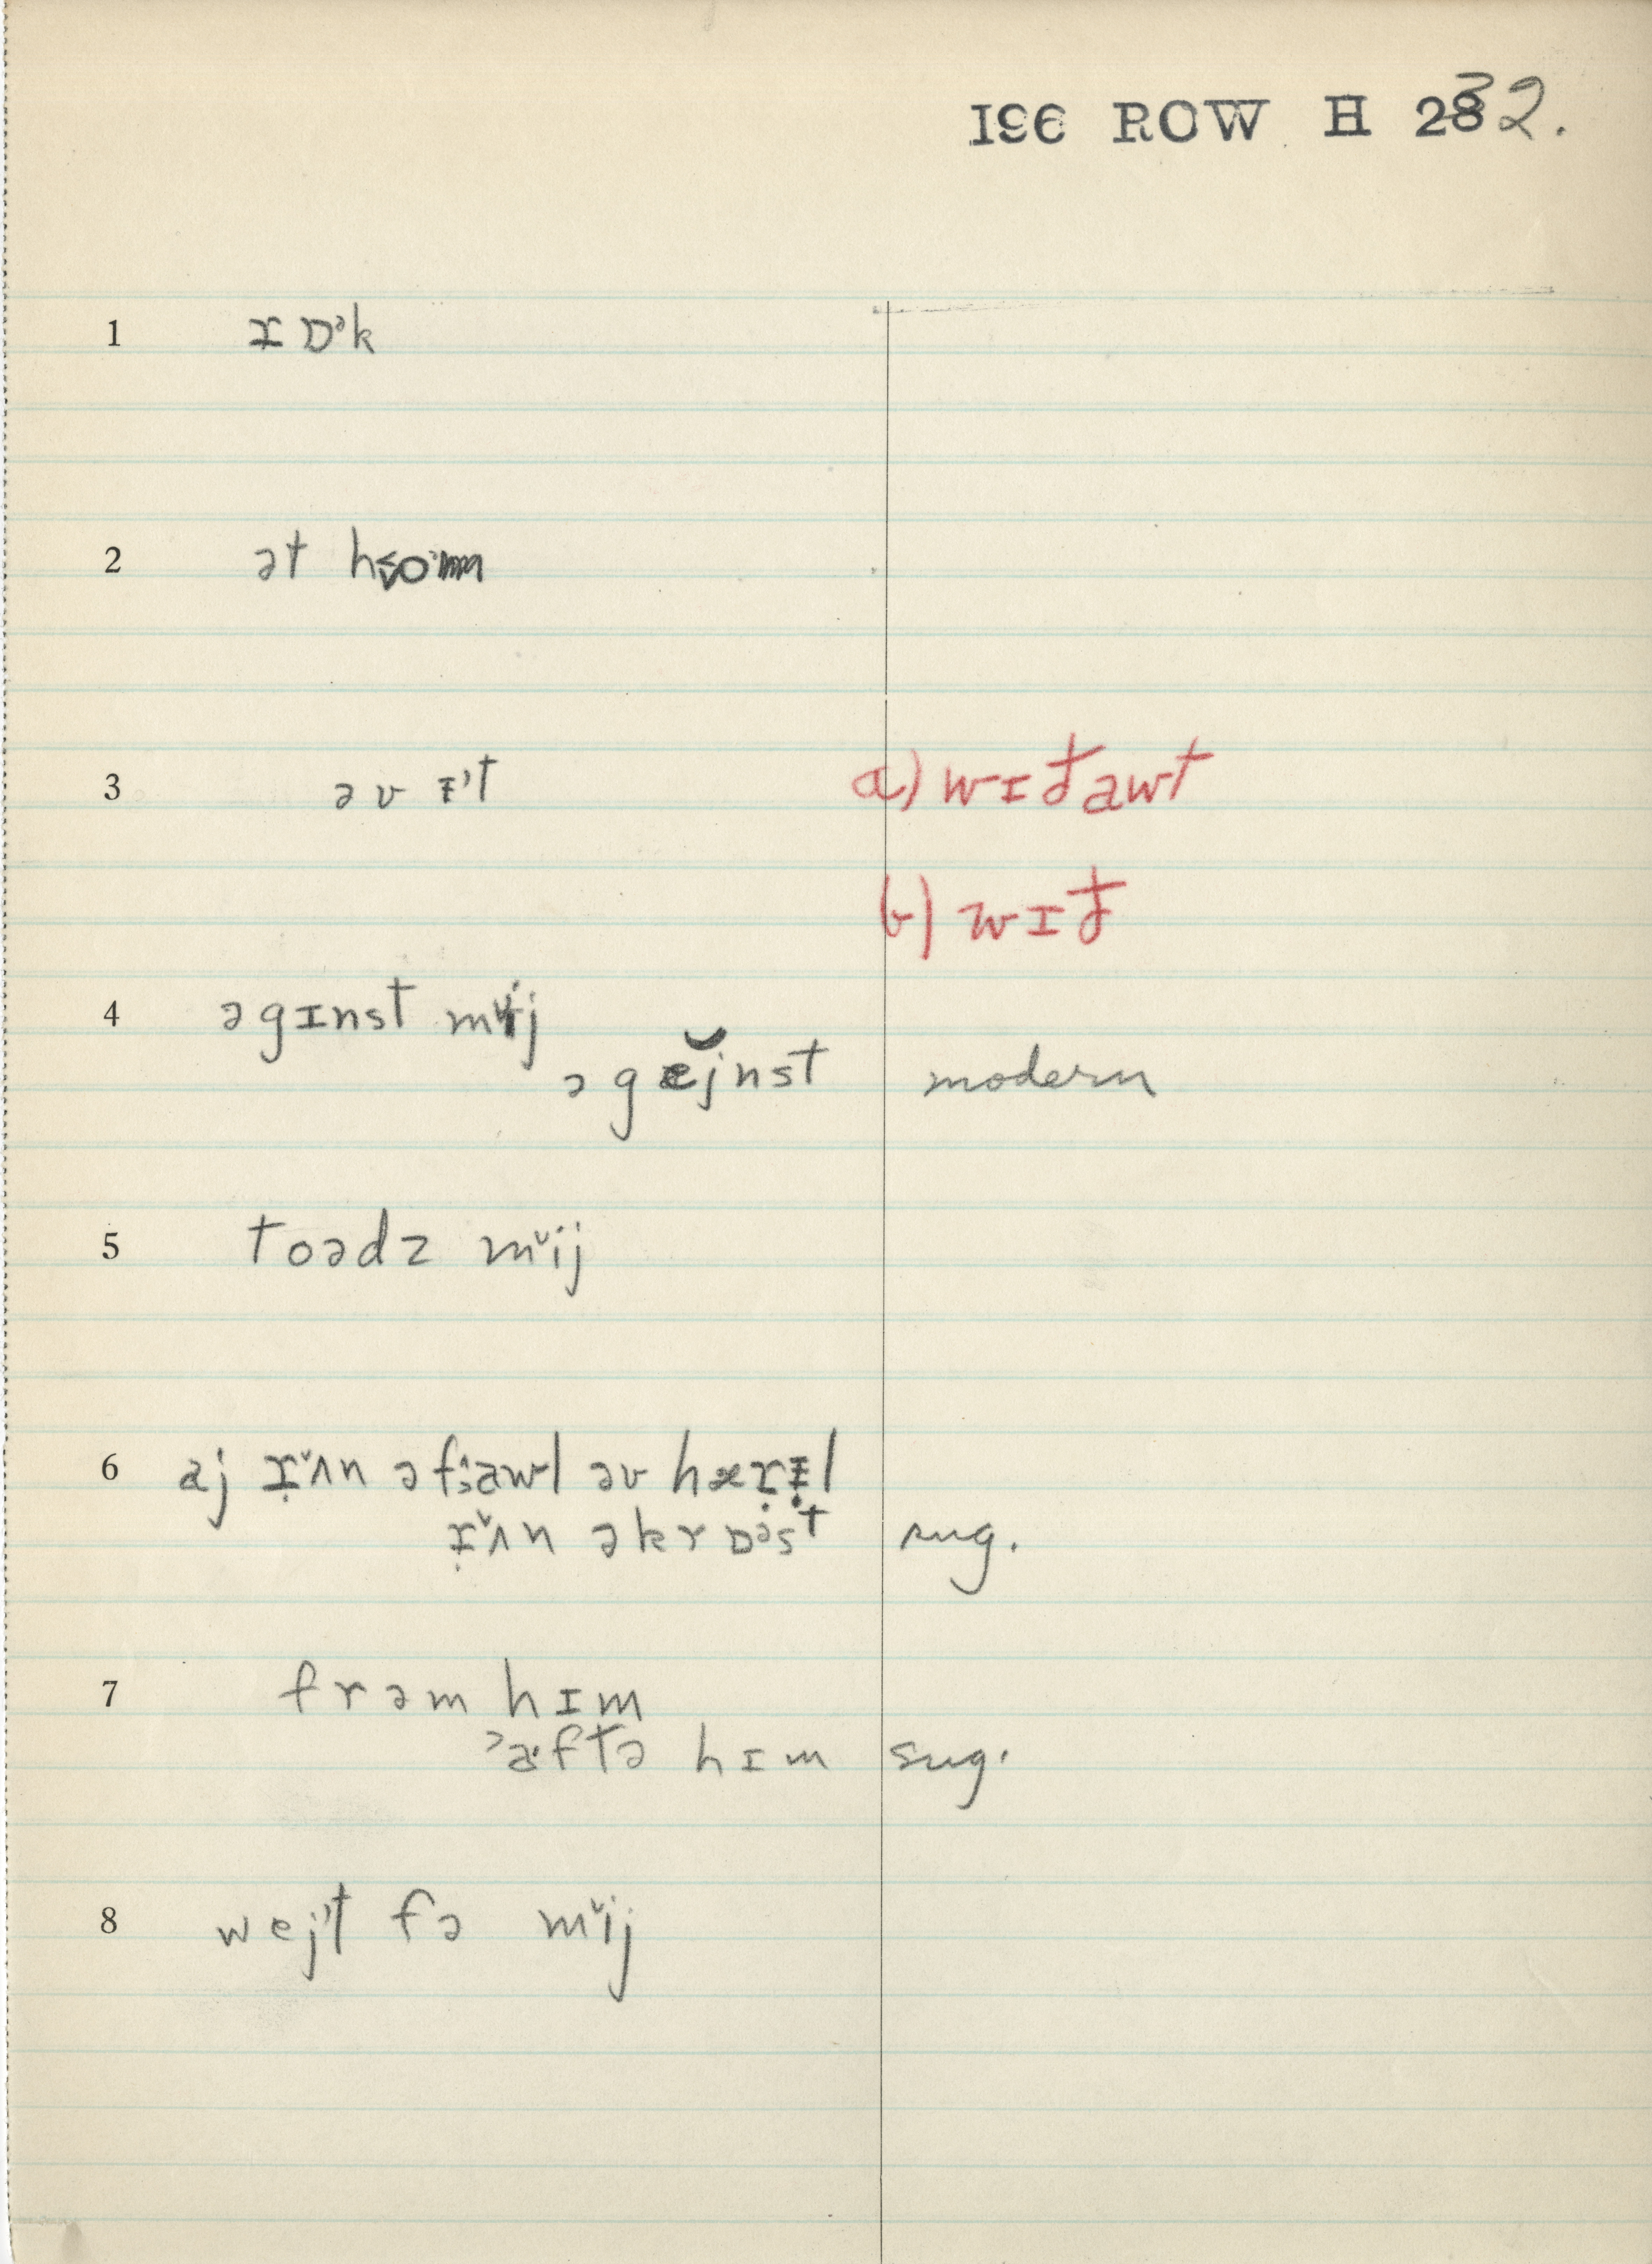 196 ROW H 232.
1 ɪ ɒᵊk
2 ət
3 əv ᵻ't a) wɪðawt
b) wɪð
4 əgɪnst mᵛij
əgĕjnst modern
5 toədz mᵛij
6 aj ɪ̣ᵛʌn əfawl əv hærᵻl
ɪ̣ᵛʌn əkrɒᵊst sug.
7 frəm hɪm
ˀa·ftə hɪm sug.
8 wej't fə mᵛij